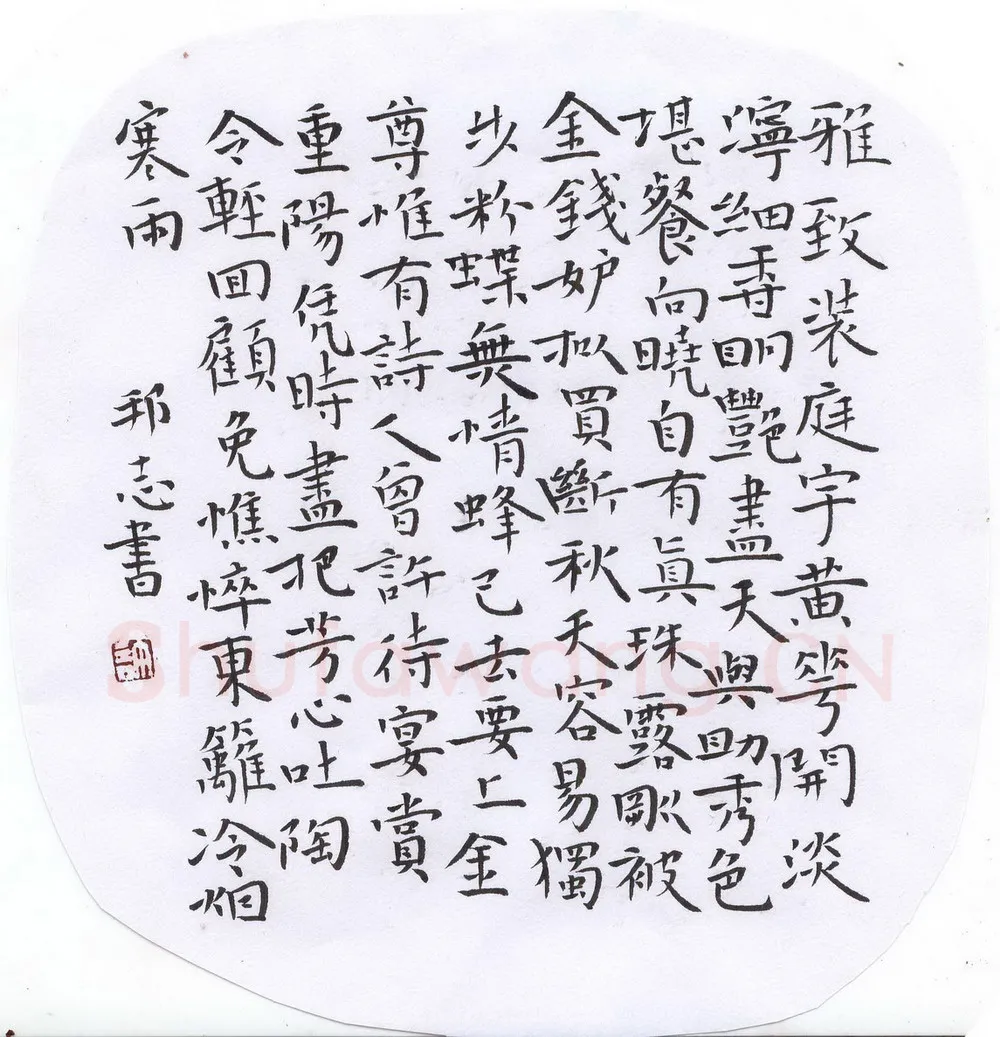 雅致裝庭宇黃華開淡
濘細香明艷盡天與助秀色
堪餐向曉自有真珠露剛被
金錢妒拟買斷秋天容易獨
步粉蝶無情蜂已去要上金
尊惟有詩人曾許待宴賞
重陽凭時盡把芳心吐陶
令輕回顧免憔悴東籬冷烟
寒雨
邦志書
Shufawang.CN